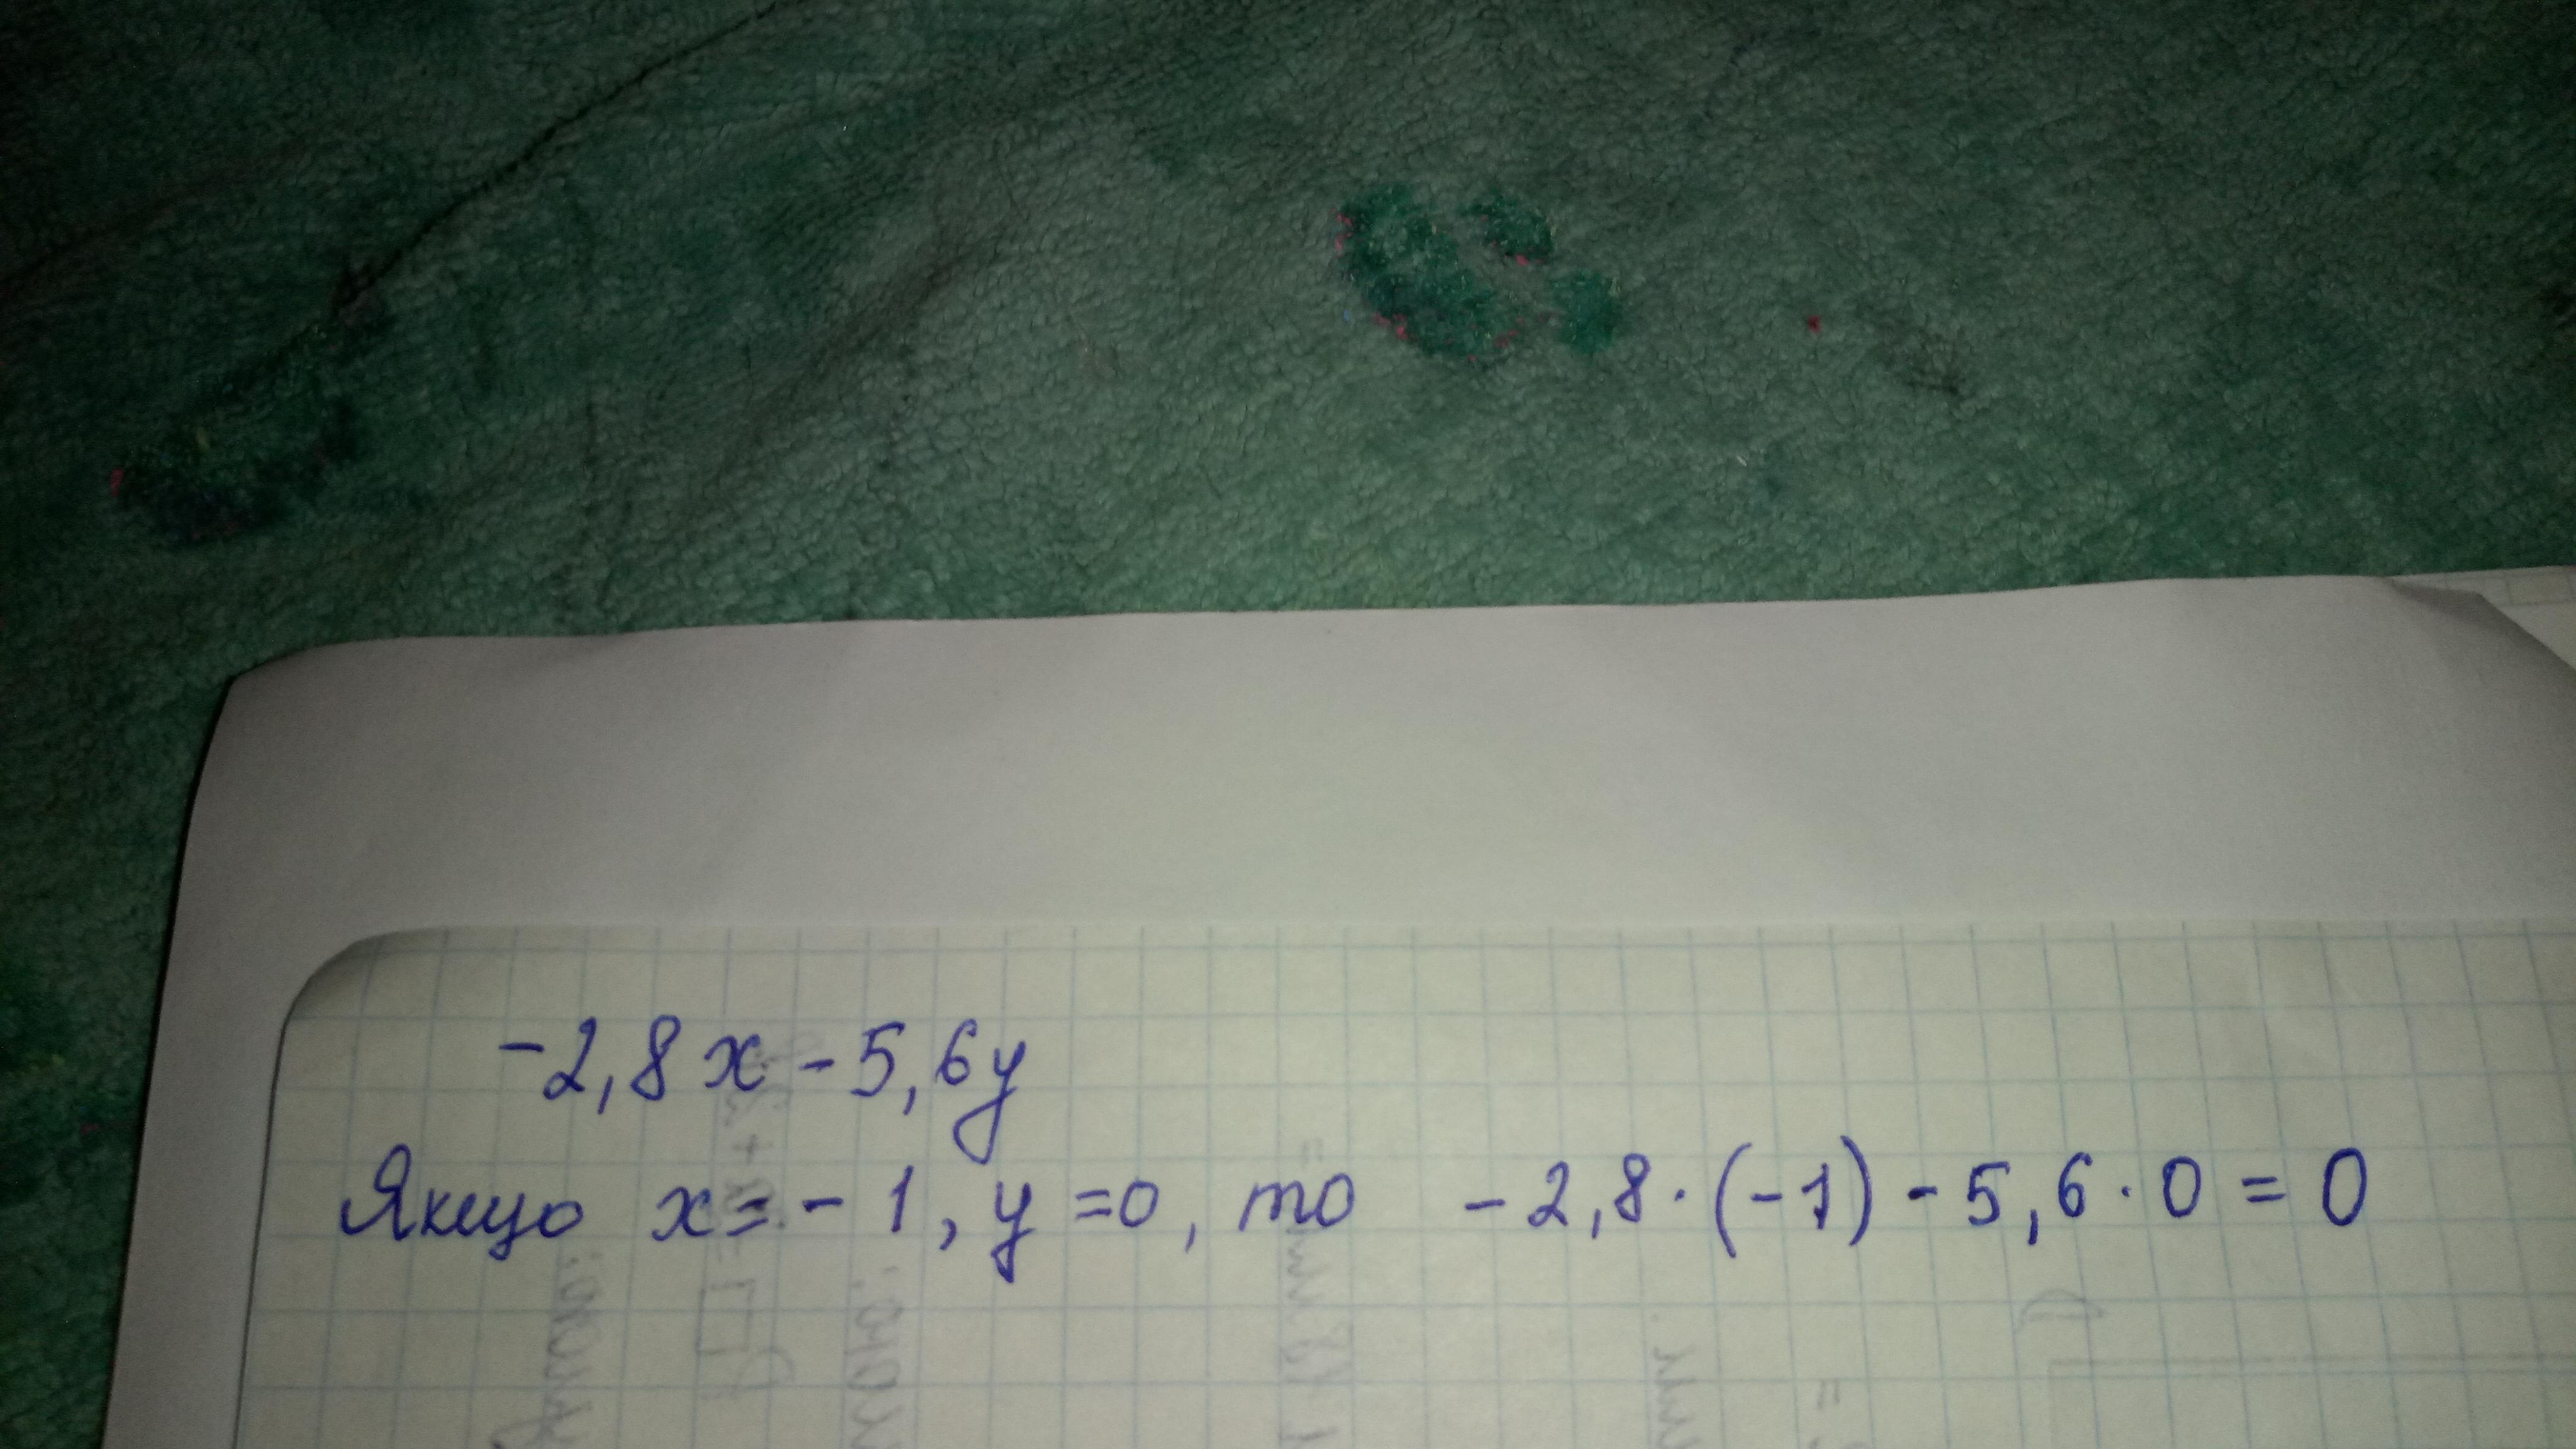 -2,8x - 5,6y
Якщо x = - 1, y = 0, то -2,8·(-1) - 5,6·0 = 0